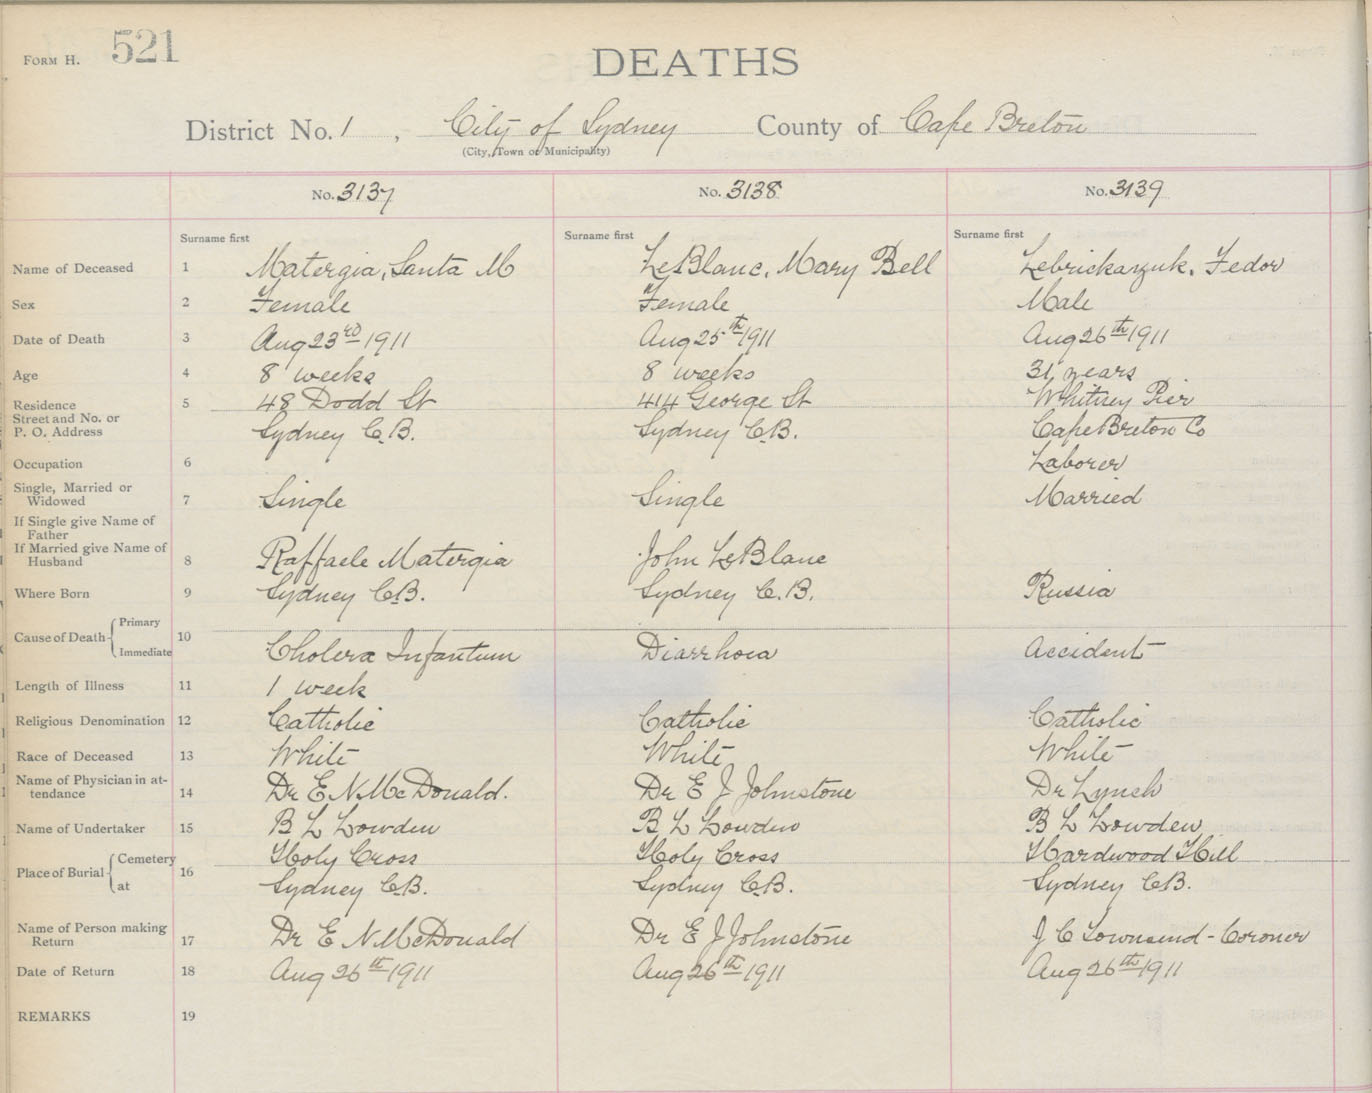 FORM H. 521
DEATHS
District No. 1 , City of Sydney County of Cape Breton
(City, Town or Municipality)
No. 3137 No. 3138 No. 3139
Surname first Surname first Surname first
Name of Deceased 1 Matergia, Santa M LeBlanc, Mary Bell Lebrickarzuk, Fedor
Sex 2 Female Female Male
Date of Death 3 Aug 23rd 1911 Aug 25th 1911 Aug 26th 1911
Age 4 8 weeks 8 weeks 31 years
Residence 5 48 Dodd St 414 George St Whitney Pier
Street and No. or
P. O. Address Sydney C.B. Sydney C.B. Cape Breton Co
Occupation 6 Laborer
Single, Married or
Widowed 7 Single Single Married
If Single give Name of
Father
If Married give Name of
Husband 8 Raffaele Matergia John LeBlanc
Where Born 9 Sydney C.B. Sydney C.B. Russia
Primary
Cause of Death 10
Immediate Cholera Infantum Diarrhoea Accident
Length of Illness 11 1 week
Religious Denomination 12 Catholic Catholic Catholic
Race of Deceased 13 White White White
Name of Physician in at-
tendance 14 Dr E N McDonald. Dr E J Johnstone Dr Lynch
Name of Undertaker 15 B L Lowden B L Lowden B L Lowden
Cemetery Holy Cross Holy Cross Hardwood Hill
Place of Burial 16
at Sydney C.B. Sydney C.B. Sydney C.B.
Name of Person making
Return 17 Dr E N McDonald Dr E J Johnstone J C Townsend - Coroner
Date of Return 18 Aug 26th 1911 Aug 26th 1911 Aug 26th 1911
REMARKS 19